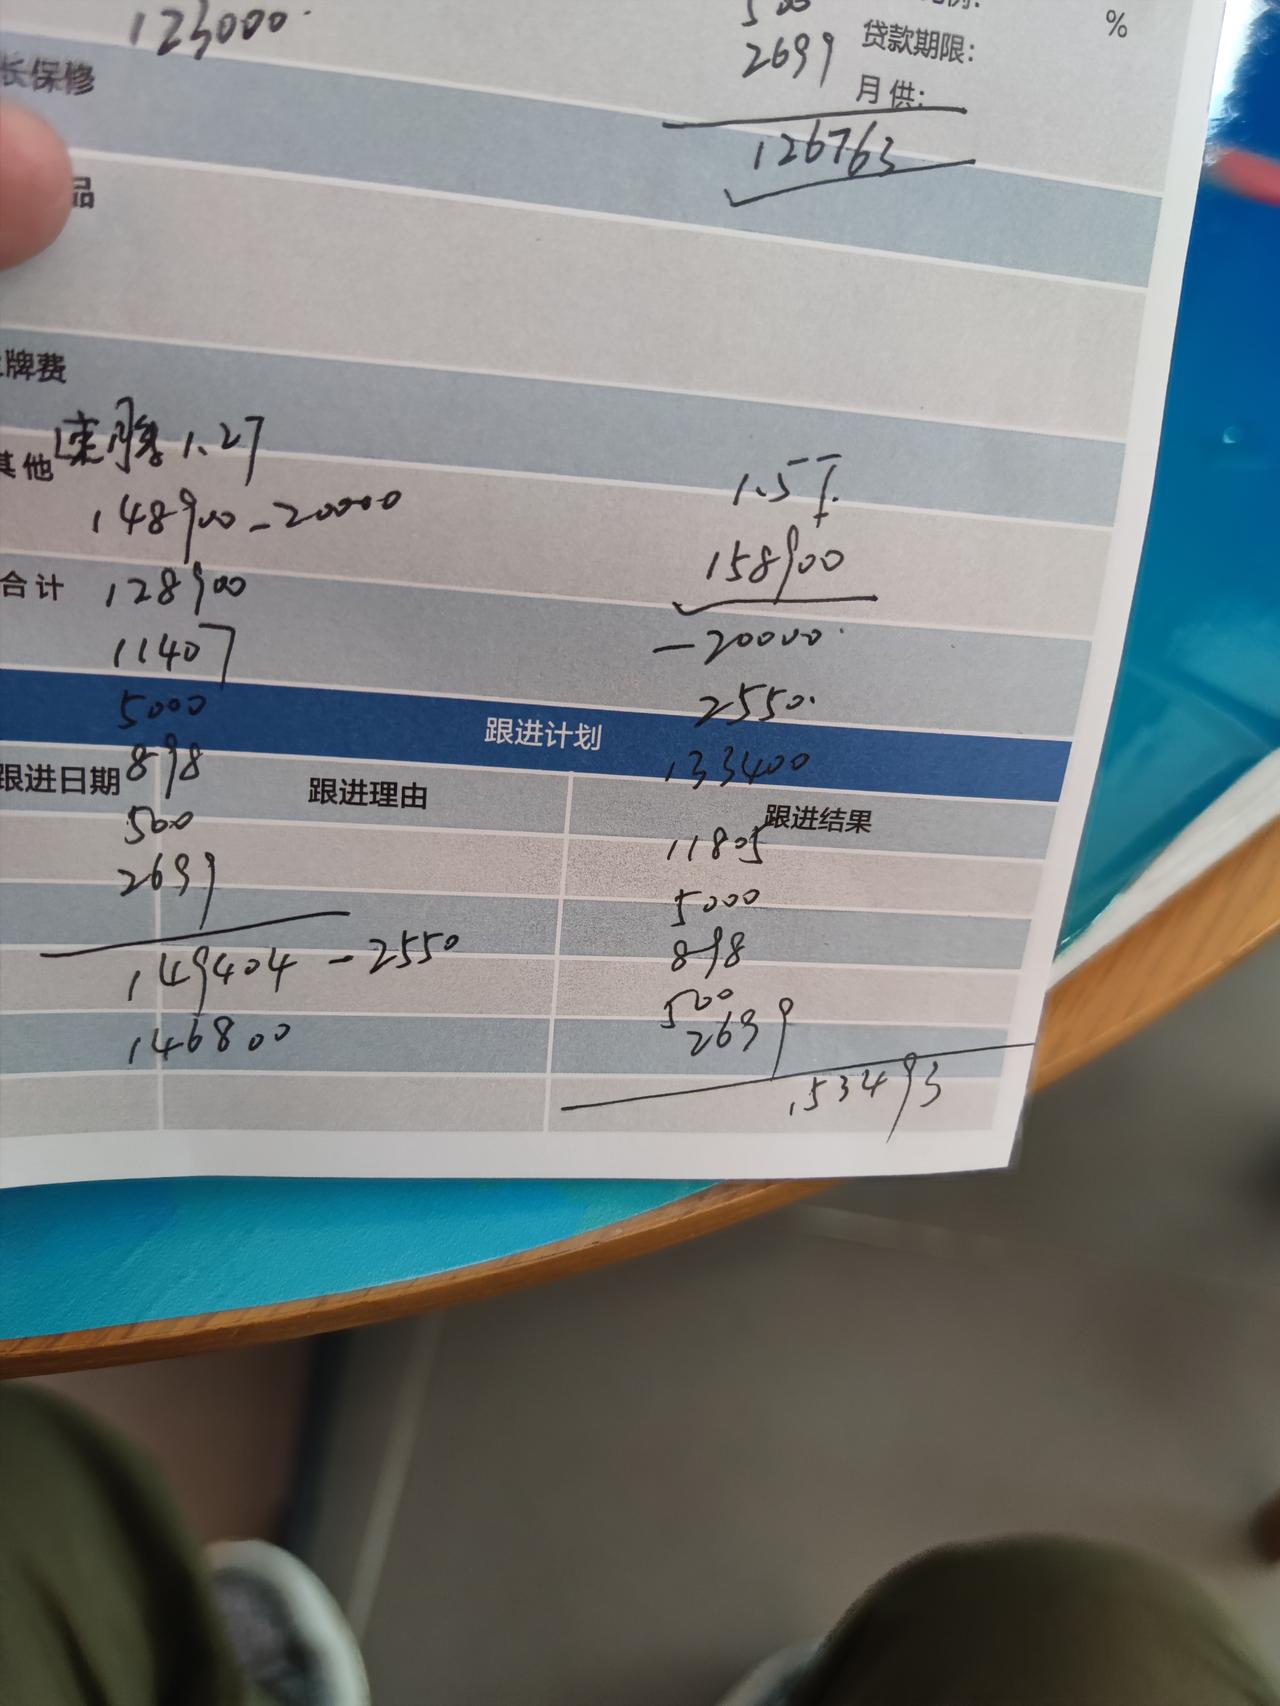 123000.
500
%
2699
贷款期限:
月供:
长保修
126763
品
牌费
其他
速腾 1.2T
148900-20000
合计
128900
11407
5000
898
500
2699
149404 - 2550
146800
1.5T
158900
-20000.
2550.
133400
11805
5000
898
500
2699
153493
跟进计划
跟进日期
跟进理由
跟进结果